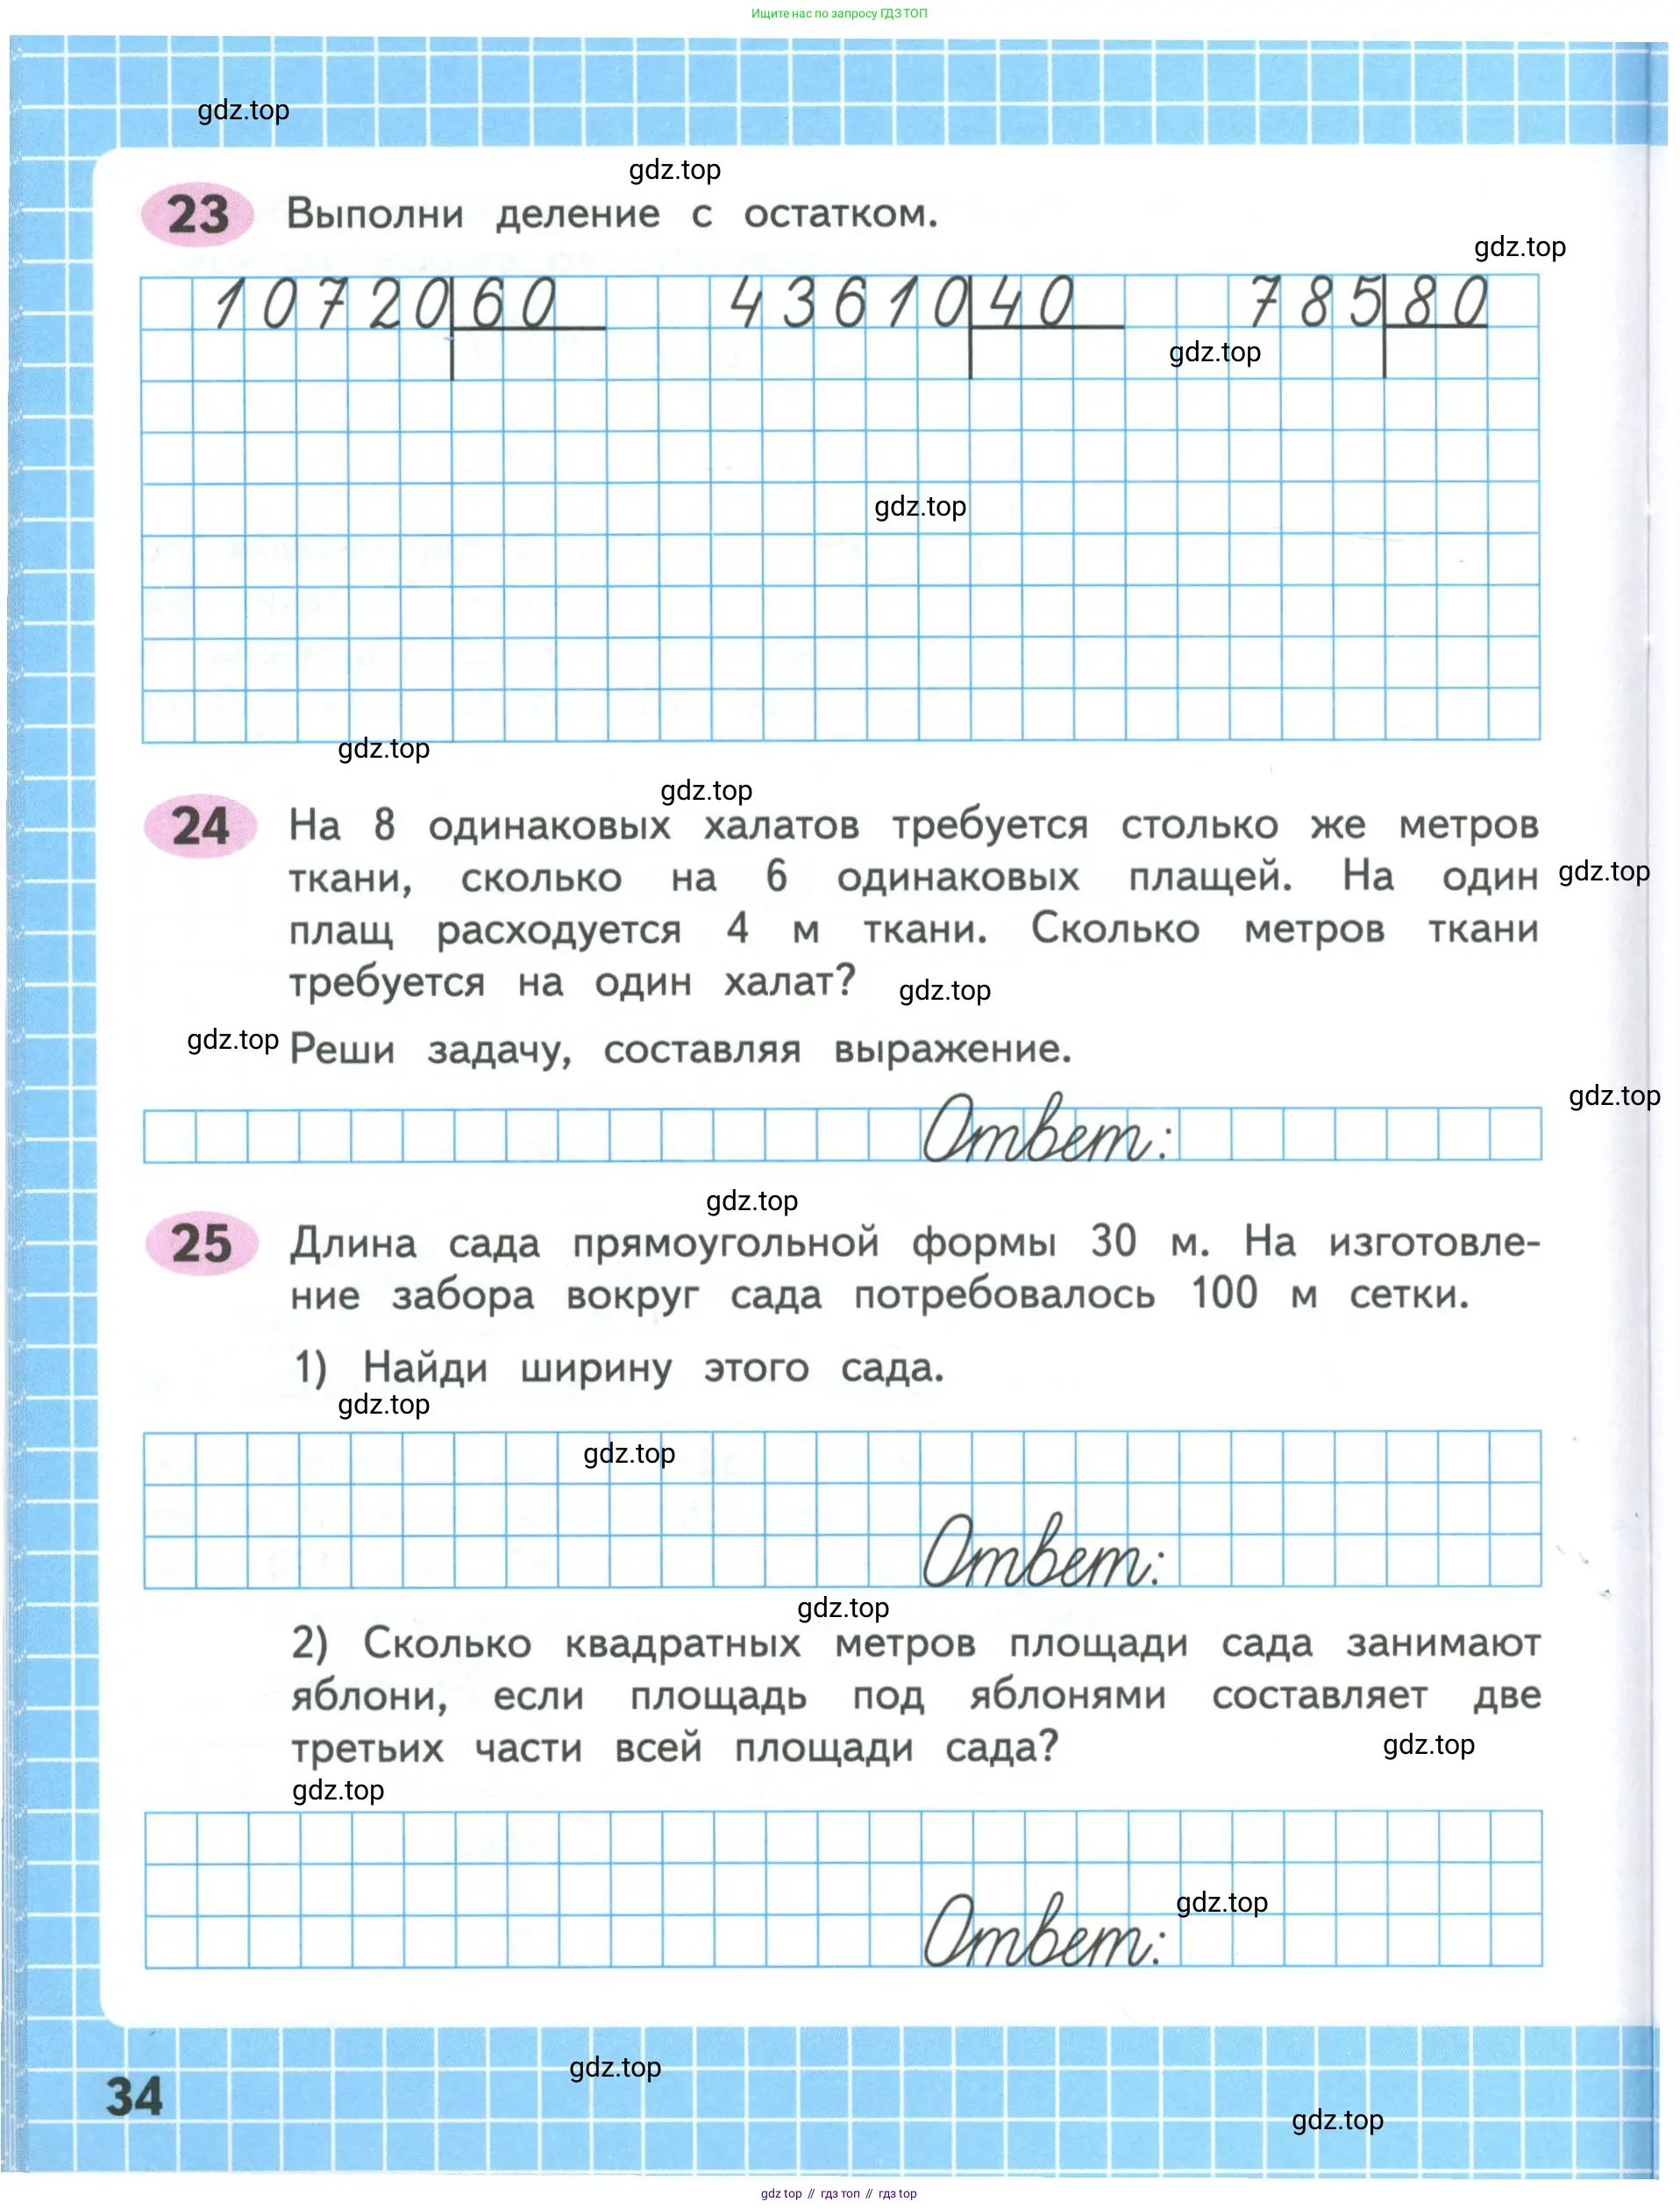 Ищите нас по запросу ГДЗ ТОП
gdz.top
gdz.top
23 Выполни деление с остатком.
gdz.top
10720 60 43610 40 785 80
gdz.top
gdz.top
gdz.top
gdz.top
24 На 8 одинаковых халатов требуется столько же метров
ткани, сколько на 6 одинаковых плащей. На один
gdz.top
плащ расходуется 4 м ткани. Сколько метров ткани
требуется на один халат?
gdz.top
gdz.top
Реши задачу, составляя выражение.
gdz.top
Ответ:
gdz.top
25 Длина сада прямоугольной формы 30 м. На изготовле-
ние забора вокруг сада потребовалось 100 м сетки.
1) Найди ширину этого сада.
gdz.top
gdz.top
Ответ:
gdz.top
2) Сколько квадратных метров площади сада занимают
яблони, если площадь под яблонями составляет две
третьих части всей площади сада?
gdz.top
gdz.top
gdz.top
Ответ:
gdz.top
34
gdz.top
gdz top // гдз топ // гдз top